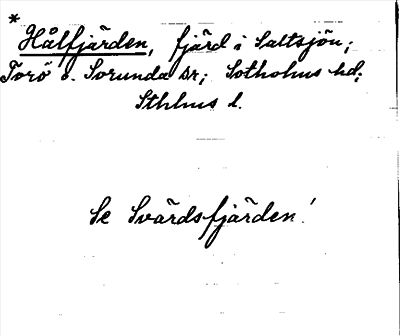 *
Hålfjärden, fjärd i Saltsjön;
Torö o. Sorunda sr; Sotholms hd;
Sthlms l.
Se Svärdsfjärden!